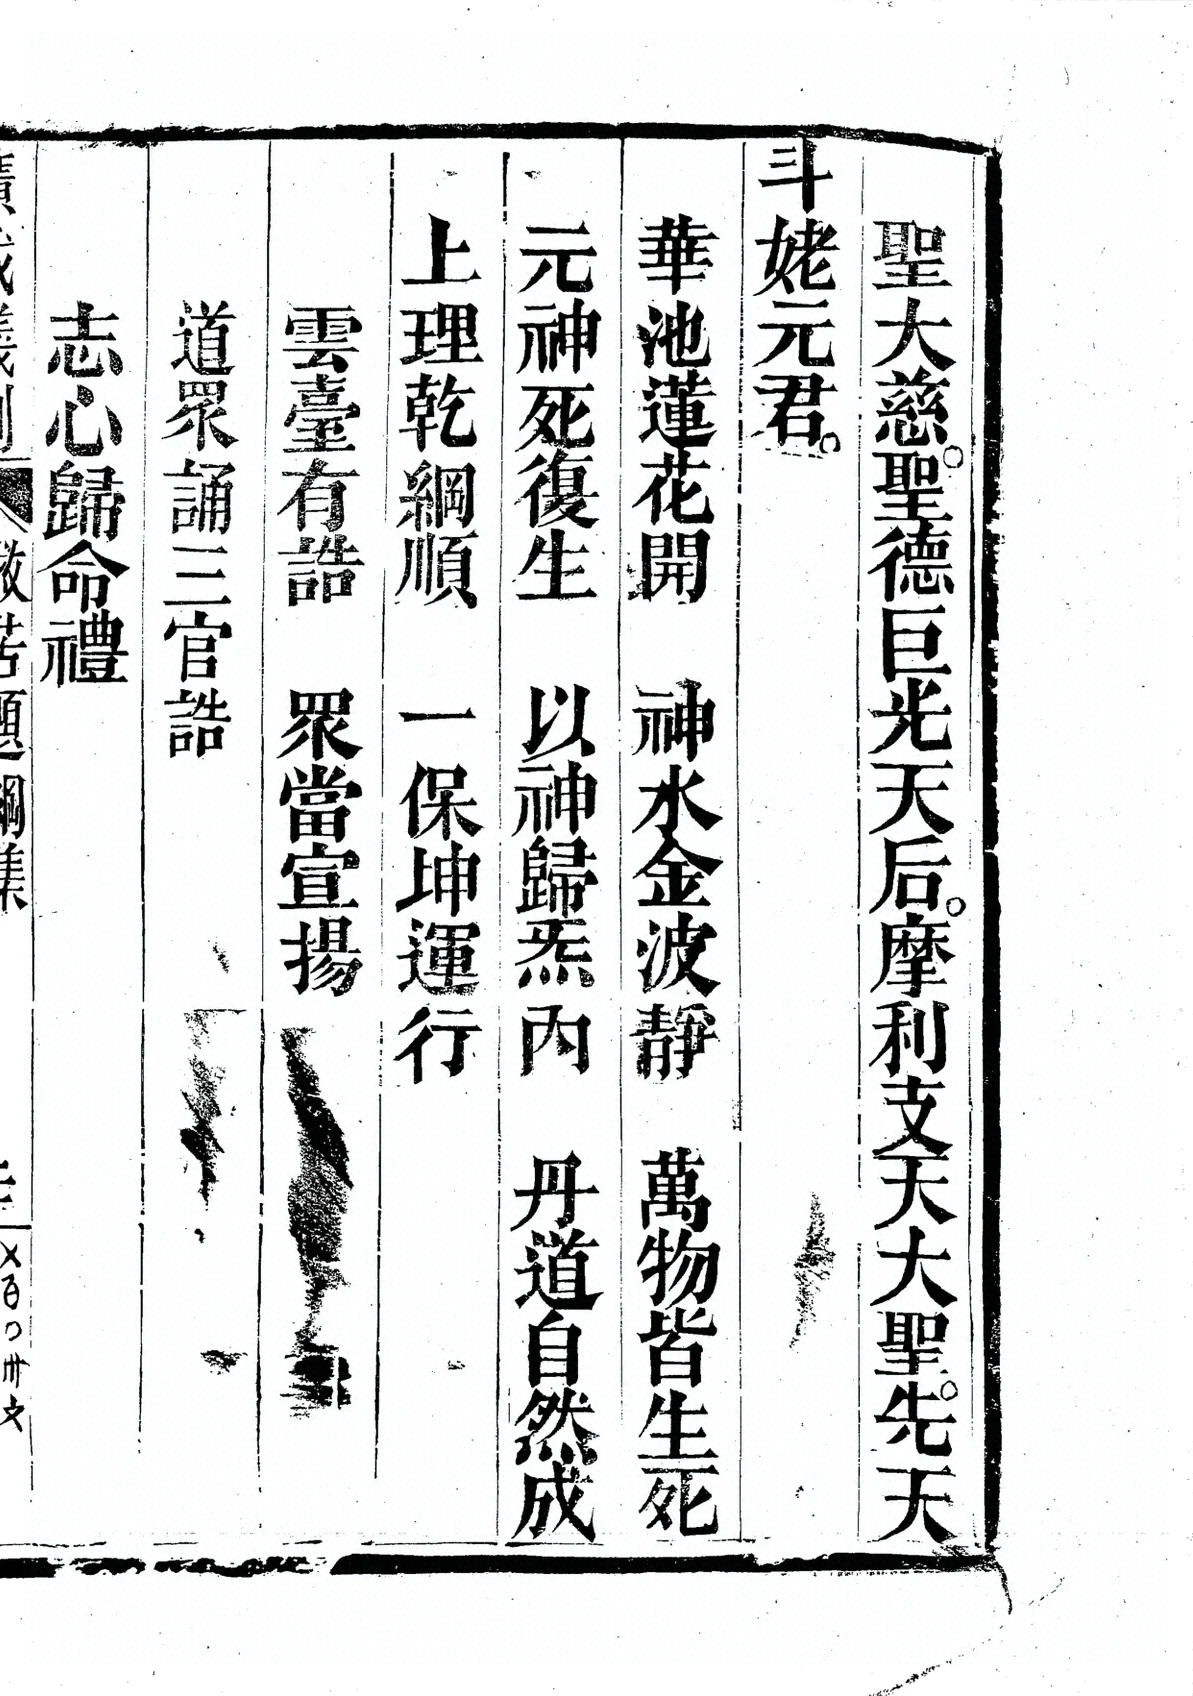 聖大慈。聖德巨光天后。摩利支天大聖。先天
斗姥元君。
華池蓮花開　神水金波靜　萬物皆生死
元神死復生　以神歸炁內　丹道自然成
上理乾綱順　一保坤運行
雲臺有誥　眾當宣揚
道眾誦三官誥
志心歸命禮